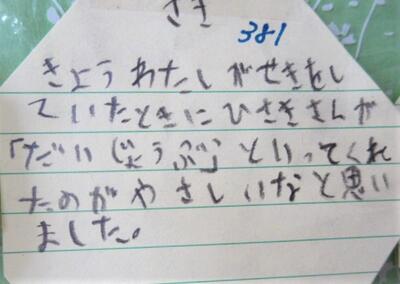 さき
381
きょうわたしがせきをし
ていたときにひさきさんが
「だいじょうぶ」といってくれ
たのがやさしいなと思い
ました。